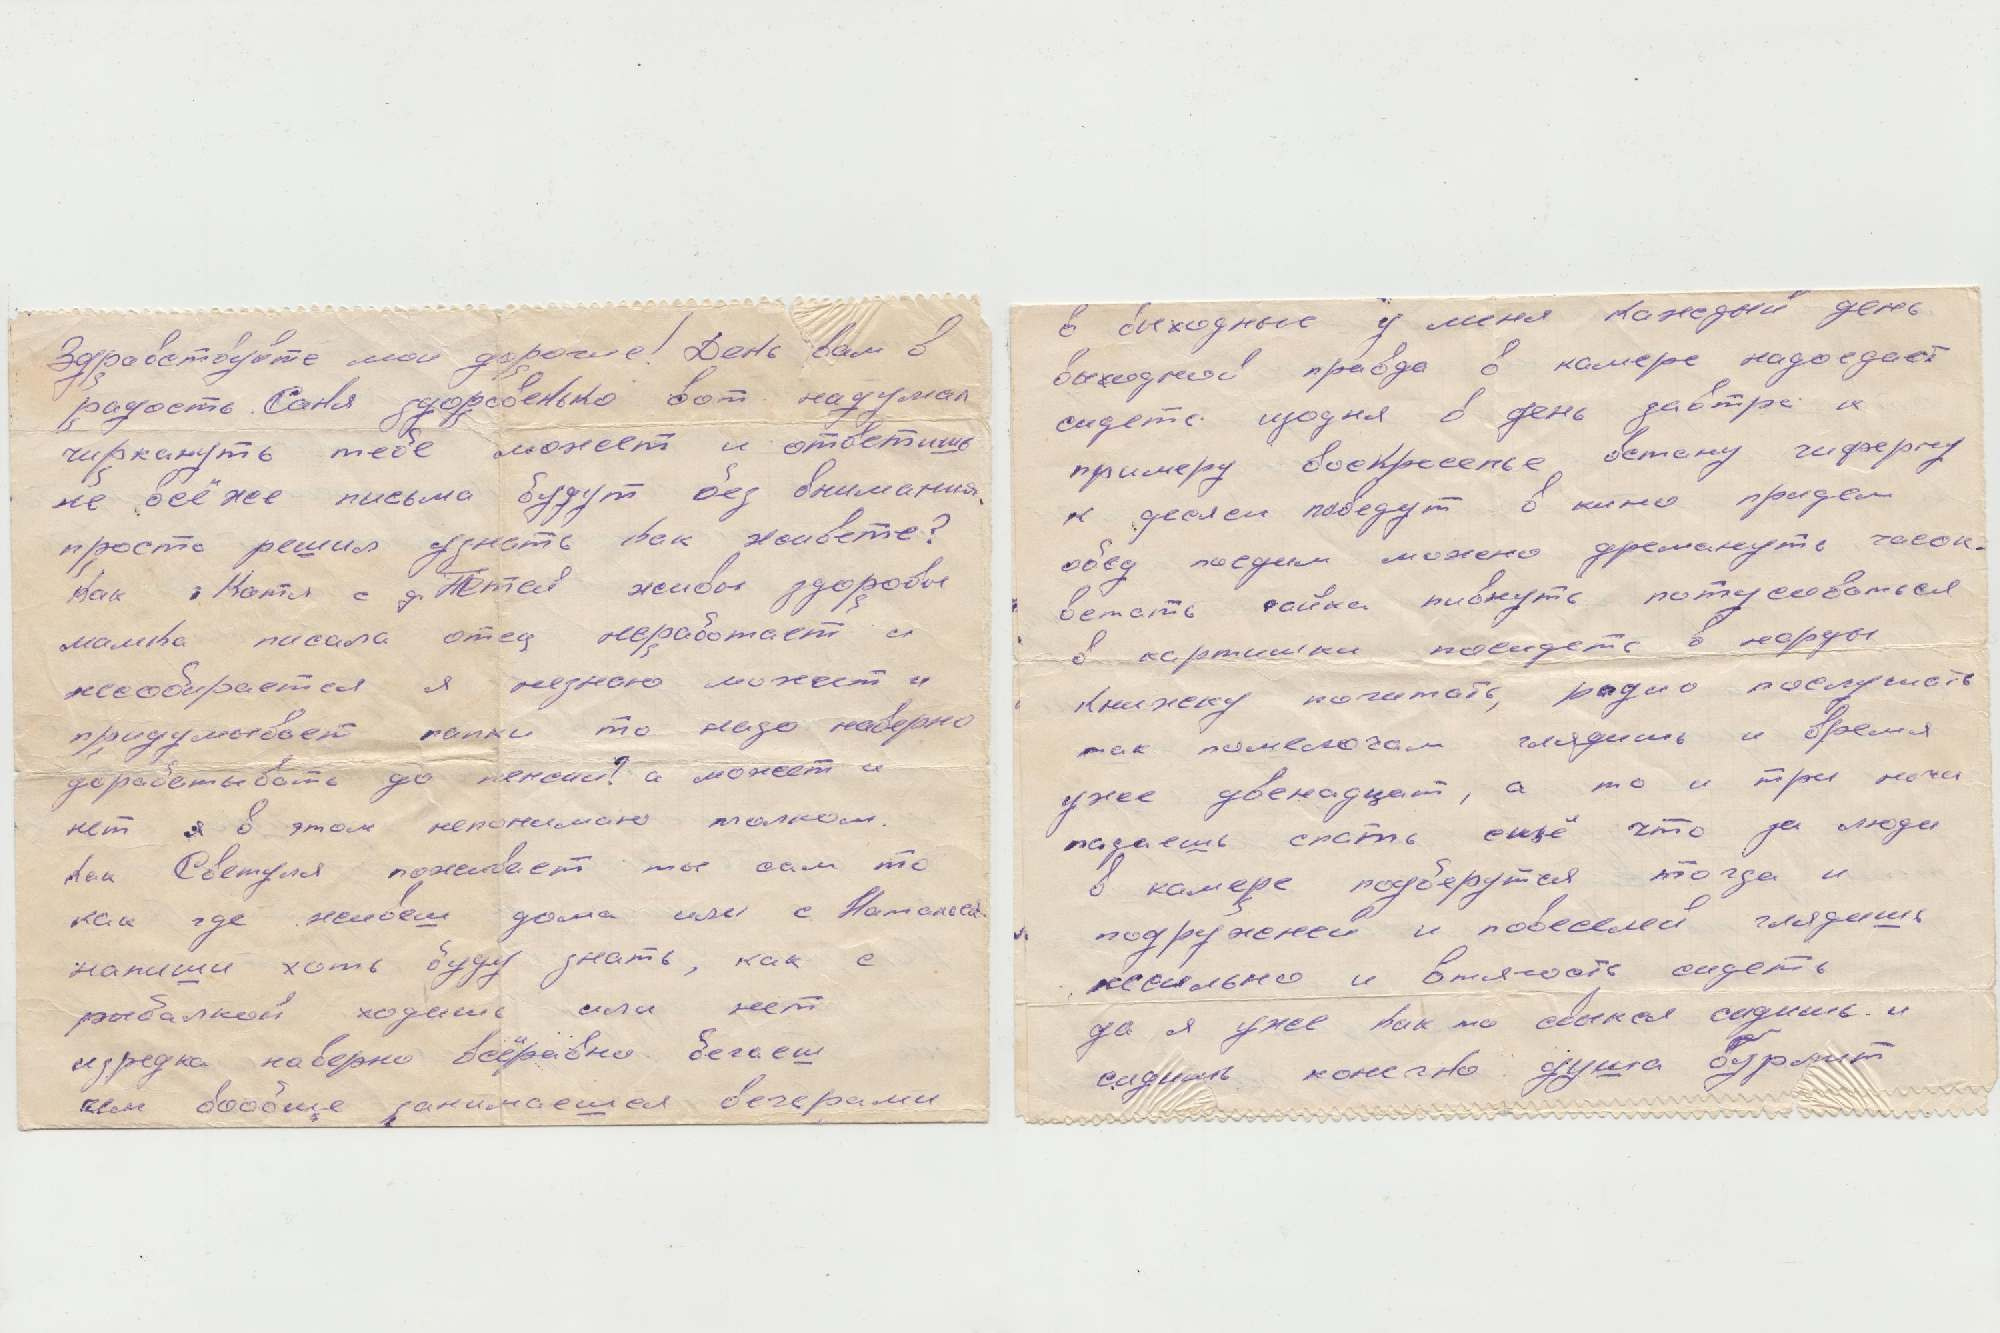 Здравствуйте мои дорогие! День вам в
радость. Саня здоровенько вот надумал
чиркануть тебе может и ответишь
не всё же письма будут без внимания.
просто решил узнать как живете?
Как Катя с д. Петей живы здоровы
мамка писала отец неработает и
несобирается я незнаю может и
придумывает папки то надо наверно
дорабатывать до пенсии? а может и
нет я в этом непонимаю толком.
как Светуля поживает ты сам то
как где живёш дома или с Натальей.
напиши хоть буду знать, как с
рыбалкой ходишь или нет
изредка наверно всёравно бегаеш
чем вообще занимаешся вечерами
в выходные у меня каждый день
выходной правда в камере надоедает
сидеть изодня в день завтра к
примеру воскресенье встану чиферну
к десяти поведут в кино придем
обед поедим можно дремануть часок.
встать чайка пивнуть потусоваться
в картишки посидеть в нарды
книжку почитать, радио послушать
так помелочам глядишь и время
уже двенадцат, а то и три ночи
падаешь спать ещё что за люди
в камере подберутся тогда и
подружней и повеселей глядишь
несильно и втягость сидеть
да я уже как то свыкся сидишь и
сидишь конечно душа бурлит